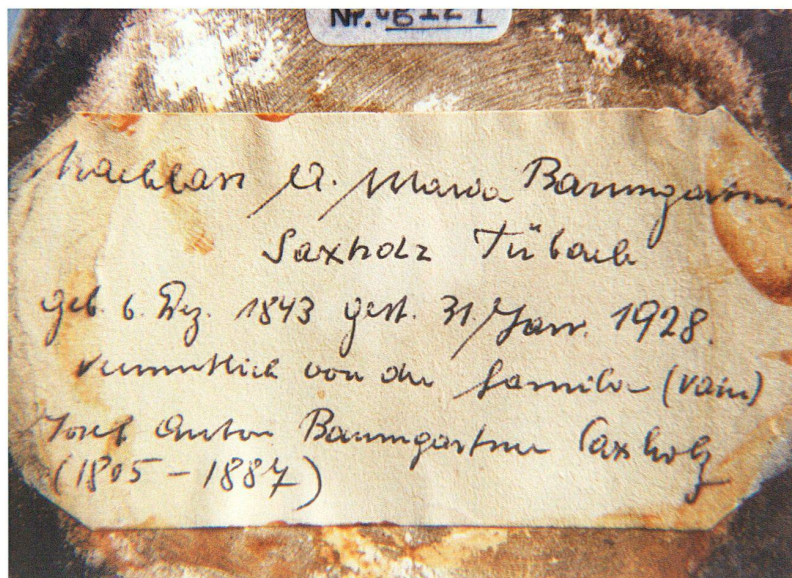 Nr.
Nachlass A. Maria Baumgartner
Saxholz Tübach
geb. 6. Dez. 1843 gest. 31 Jan. 1928.
vermutlich von der Familie (Vater)
Josef Anton Baumgartner Saxholz
(1805 – 1887)